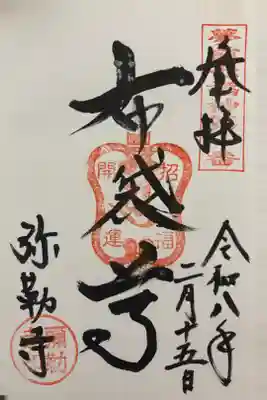 奉拝
布袋尊
招福
開運
令和八年
二月十五日
弥勒寺
彌勒